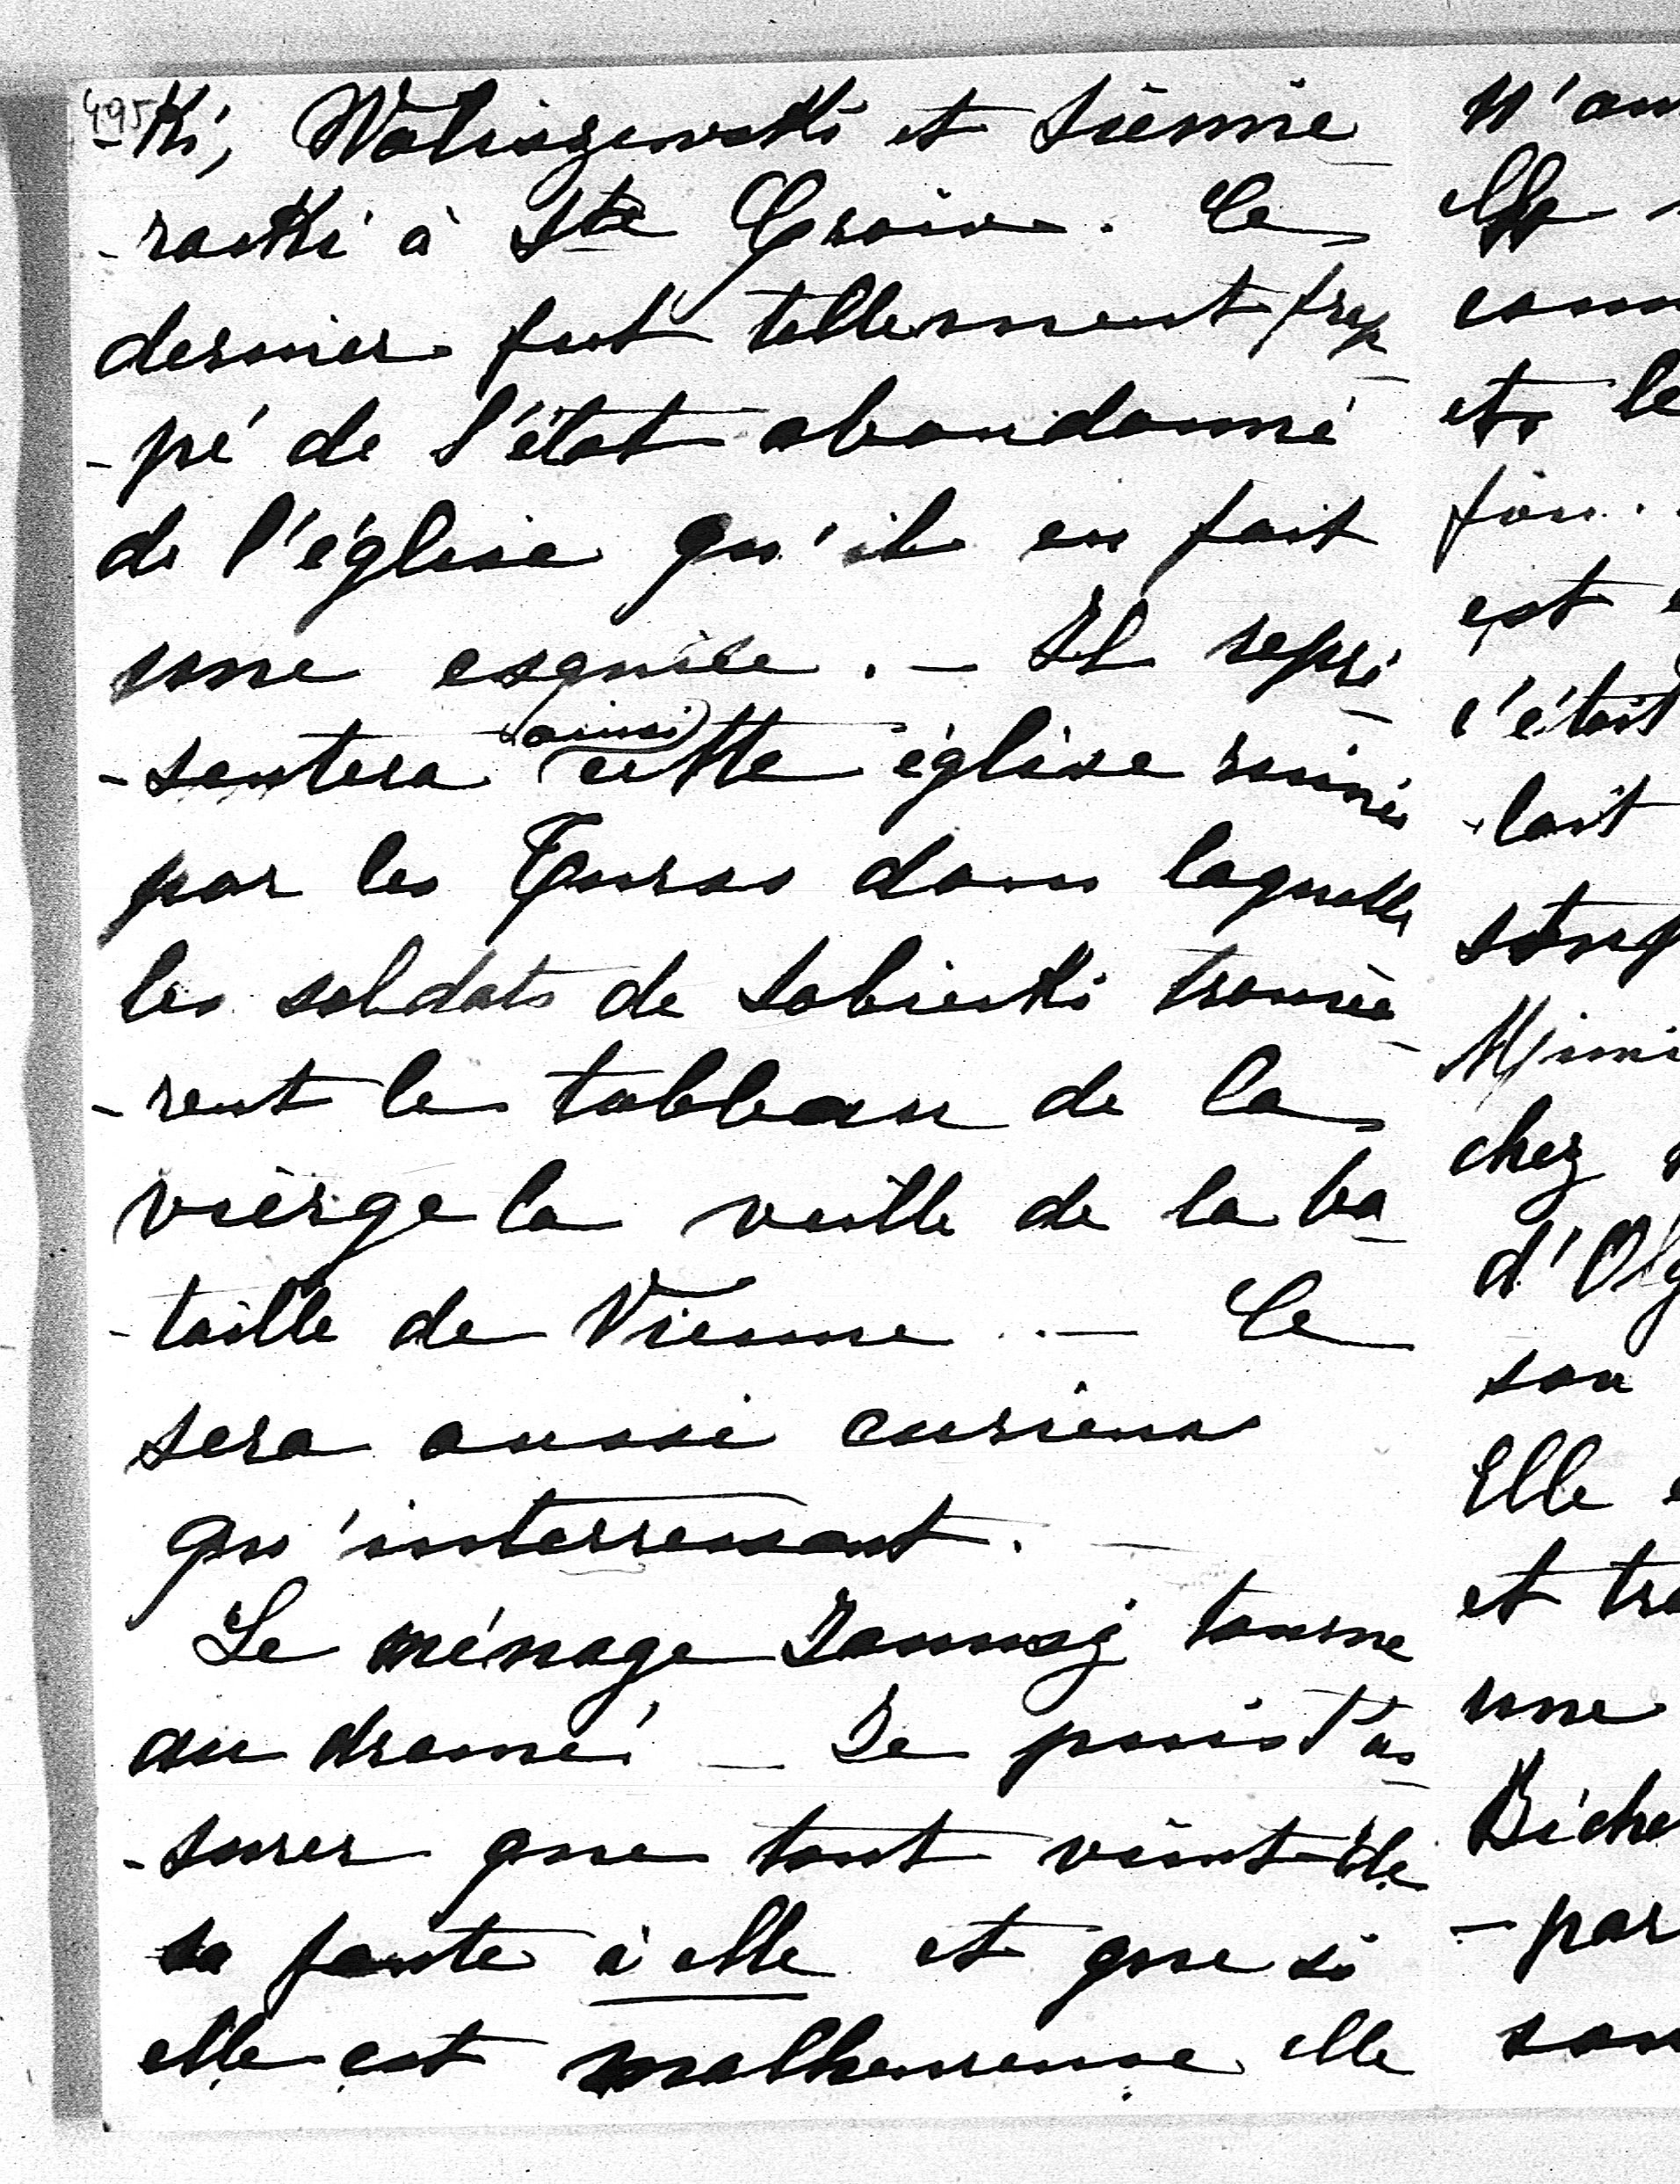 495
-ki, Waliszewski et Siémie
-radki à Ste Croix. Ce
dernier fut tellement frap
-pé de l'état abandonné
de l'église qu'il en fait
une esquice. - Il repré
ainsi
-sentera cette église ruiné
par les Turcs dans laquelle
les soldats de Sobieski trouvè
-rent le tableau de la
vièrge la veille de la ba
-taille de Vienne. - Ce
sera aussi curieux
qu'interressant.
Le ménage Janusz tourne
au drame! - Je puis t'as
-surer que tout vient de
sa faute à elle et que si
elle est malheureuse elle
n'au
elle
com
et le
fou.
est
c'était
-lait
stup
Mimi
chez
d'Olg
son
Elle
et tre
une
Biche
-par
son